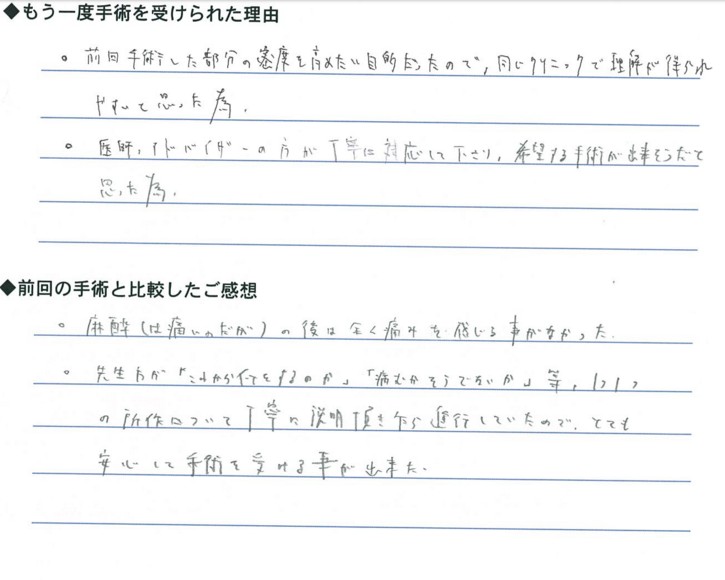 ◆もう一度手術を受けられた理由
。前回手術した部分の密度を高めたい目的だったので、同じクリニックで理解が得られ
やすいと思った為。
。医師、アドバイザーの方が丁寧に対応して下さり、希望する手術が出来そうだと
思った為。
◆前回の手術と比較したご感想
。麻酔(は痛いのだが)の後は全く痛みを感じる事がなかった。
。先生方が「これから何をするのか」「痛むかそうでないか」等、1つ1つ
の所作について丁寧に説明頂き乍ら進行していたので、とても
安心して手術を受ける事が出来た。